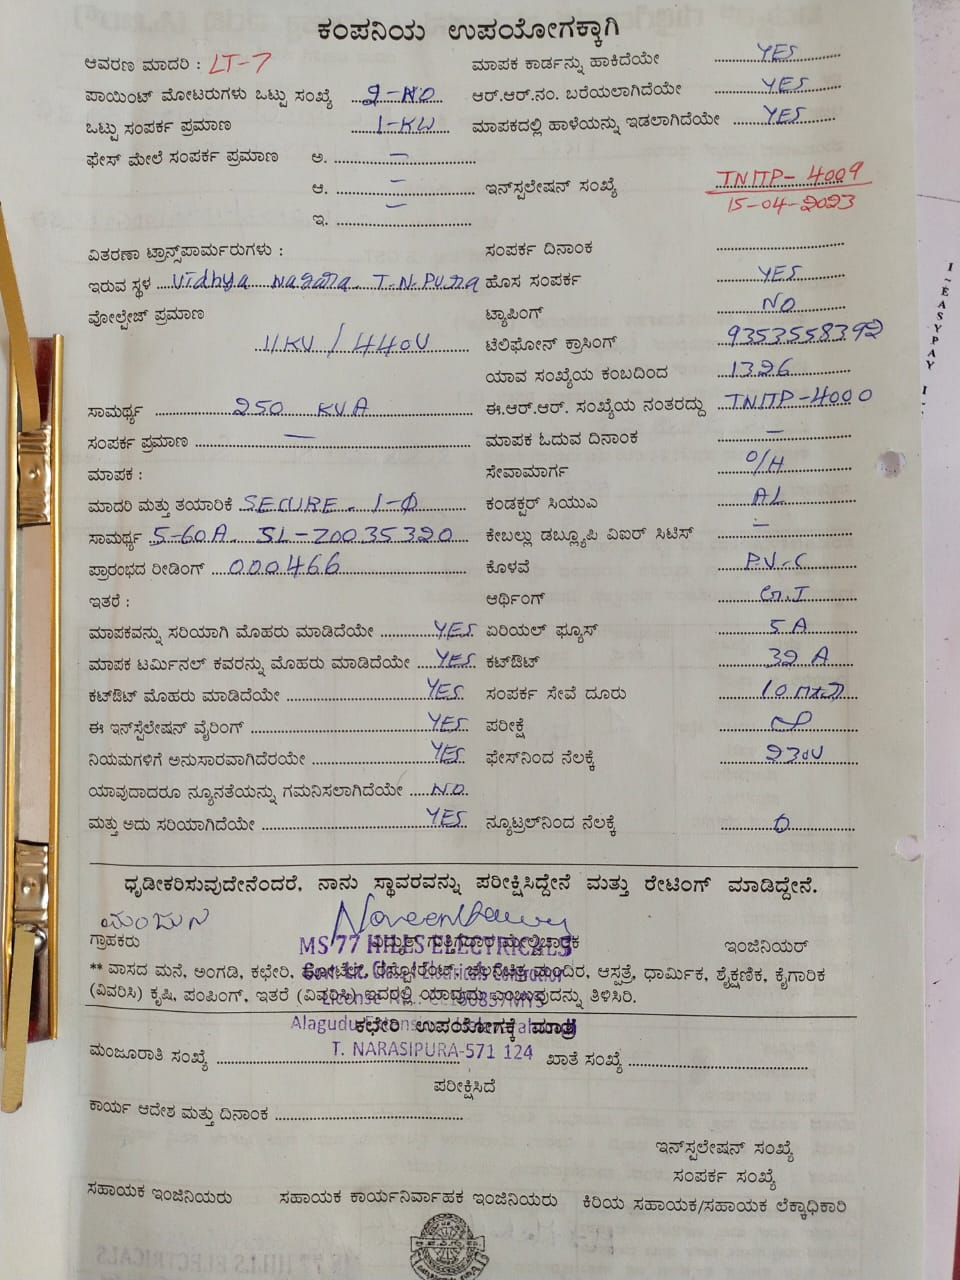 ಕಂಪನಿಯ ಉಪಯೋಗಕ್ಕಾಗಿ
ಆವರಣ ಮಾದರಿ : LT-7 ಮಾಪಕ ಕಾರ್ಡನ್ನು ಹಾಕಿದೆಯೇ YES
ಪಾಯಿಂಟ್ ಮೋಟರುಗಳು ಒಟ್ಟು ಸಂಖ್ಯೆ 2-NO ಆರ್.ಆರ್.ನಂ. ಬರೆಯಲಾಗಿದೆಯೇ YES
ಒಟ್ಟು ಸಂಪರ್ಕ ಪ್ರಮಾಣ 1-KW ಮಾಪಕದಲ್ಲಿ ಹಾಳೆಯನ್ನು ಇಡಲಾಗಿದೆಯೇ YES
ಫೇಸ್ ಮೇಲೆ ಸಂಪರ್ಕ ಪ್ರಮಾಣ ಅ. —
ಆ. — ಇನ್‌ಸ್ಟಲೇಷನ್ ಸಂಖ್ಯೆ TNITP-4009
ಇ. — 15-04-2023
ವಿತರಣಾ ಟ್ರಾನ್ಸ್‌ಪಾರ್ಮರುಗಳು : ಸಂಪರ್ಕ ದಿನಾಂಕ
ಇರುವ ಸ್ಥಳ Vidhya Nagara T.N.Pura ಹೊಸ ಸಂಪರ್ಕ YES
ವೋಲ್ಟೇಜ್ ಪ್ರಮಾಣ ಟ್ಯಾಪಿಂಗ್ NO
11KV / 440V ಟೆಲಿಫೋನ್ ಕ್ರಾಸಿಂಗ್ 9353558392
ಯಾವ ಸಂಖ್ಯೆಯ ಕಂಬದಿಂದ 1326
ಸಾಮರ್ಥ್ಯ 250 KVA ಈ.ಆರ್.ಆರ್. ಸಂಖ್ಯೆಯ ನಂತರದ್ದು TNITP-4000
ಸಂಪರ್ಕ ಪ್ರಮಾಣ — ಮಾಪಕ ಓದುವ ದಿನಾಂಕ —
ಮಾಪಕ : ಸೇವಾಮಾರ್ಗ O/H
ಮಾದರಿ ಮತ್ತು ತಯಾರಿಕೆ SECURE. 1-Φ ಕಂಡಕ್ಟರ್ ಸಿಯುಎ AL
ಸಾಮರ್ಥ್ಯ 5-60A. SL-Z0035320 ಕೇಬಲ್ಲು ಡಬ್ಲ್ಯೂಪಿ ವಿಐಆರ್ ಸಿಟಿಸ್ —
ಪ್ರಾರಂಭದ ರೀಡಿಂಗ್ 000466 ಕೊಳವೆ P.V.C
ಇತರೆ : ಆರ್ಥಿಂಗ್ G.I
ಮಾಪಕವನ್ನು ಸರಿಯಾಗಿ ಮೊಹರು ಮಾಡಿದೆಯೇ YES ಏರಿಯಲ್ ಫ್ಯೂಸ್ 5A
ಮಾಪಕ ಟರ್ಮಿನಲ್ ಕವರನ್ನು ಮೊಹರು ಮಾಡಿದೆಯೇ YES ಕಟ್‌ಔಟ್ 32 A
ಕಟ್‌ಔಟ್ ಮೊಹರು ಮಾಡಿದೆಯೇ YES ಸಂಪರ್ಕ ಸೇವೆ ದೂರು 10
ಈ ಇನ್‌ಸ್ಟೆಲೇಷನ್ ವೈರಿಂಗ್ YES ಪರೀಕ್ಷೆ
ನಿಯಮಗಳಿಗೆ ಅನುಸಾರವಾಗಿದೆರಯೇ YES ಫೇಸ್‌ನಿಂದ ನೆಲಕ್ಕೆ 230V
ಯಾವುದಾದರೂ ನ್ಯೂನತೆಯನ್ನು ಗಮನಿಸಲಾಗಿದೆಯೇ NO
ಮತ್ತು ಅದು ಸರಿಯಾಗಿದೆಯೇ YES ನ್ಯೂಟ್ರಲ್‌ನಿಂದ ನೆಲಕ್ಕೆ 0
ಧೃಡೀಕರಿಸುವುದೇನೆಂದರೆ, ನಾನು ಸ್ಥಾವರವನ್ನು ಪರೀಕ್ಷಿಸಿದ್ದೇನೆ ಮತ್ತು ರೇಟಿಂಗ್ ಮಾಡಿದ್ದೇನೆ.
ಗ್ರಾಹಕರು ವಿದ್ಯುತ್ ಗುತ್ತಿಗೆದಾರ ಮೇಲ್ವಿಚಾರಕ ಇಂಜಿನಿಯರ್
MS 77 HILLS ELECTRICALS
** ವಾಸದ ಮನೆ, ಅಂಗಡಿ, ಕಛೇರಿ, ಹೋಟೆಲ್, ರೆಸ್ಟೋರೆಂಟ್, ಚಲನಚಿತ್ರ ಮಂದಿರ, ಆಸ್ಪತ್ರೆ, ಧಾರ್ಮಿಕ, ಶೈಕ್ಷಣಿಕ, ಕೈಗಾರಿಕ
(ವಿವರಿಸಿ) ಕೃಷಿ, ಪಂಪಿಂಗ್, ಇತರೆ (ವಿವರಿಸಿ) ಇದರಲ್ಲಿ ಯಾವುದು ಎಂಬುವುದನ್ನು ತಿಳಿಸಿರಿ.
ಕಛೇರಿ ಉಪಯೋಗಕ್ಕೆ ಮಾತ್ರ
T. NARASIPURA-571 124
ಮಂಜೂರಾತಿ ಸಂಖ್ಯೆ ಖಾತೆ ಸಂಖ್ಯೆ
ಪರೀಕ್ಷಿಸಿದೆ
ಕಾರ್ಯ ಆದೇಶ ಮತ್ತು ದಿನಾಂಕ
ಇನ್‌ಸ್ಟಲೇಷನ್ ಸಂಖ್ಯೆ
ಸಂಪರ್ಕ ಸಂಖ್ಯೆ
ಸಹಾಯಕ ಇಂಜಿನಿಯರು ಸಹಾಯಕ ಕಾರ್ಯನಿರ್ವಾಹಕ ಇಂಜಿನಿಯರು ಕಿರಿಯ ಸಹಾಯಕ/ಸಹಾಯಕ ಲೆಕ್ಕಾಧಿಕಾರಿ
I-EASYPAY